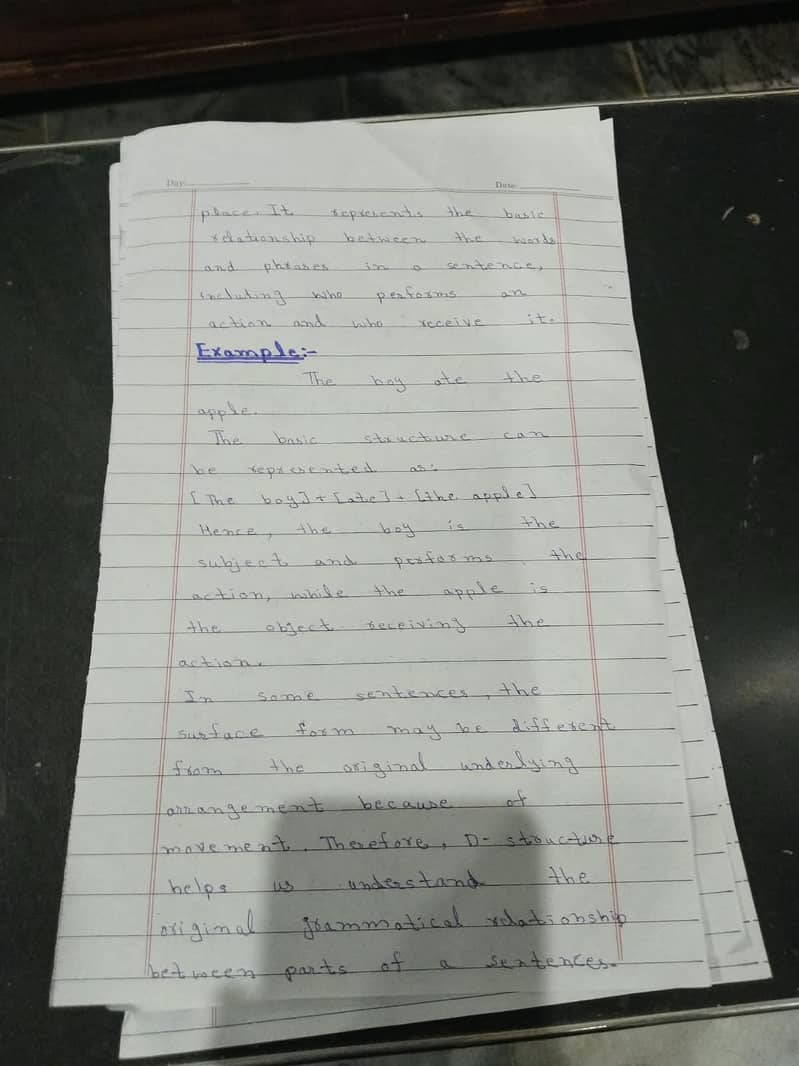 Day:
Date:
place. It represents the basic
relationship between the words
and phrases in a sentence,
including who performs an
action and who receive it.
Example:-
The boy ate the
apple.
The basic structure can
be represented as:
[The boy] + [ate] + [the apple]
Hence, the boy is the
subject and performs the
action, while the apple is
the object receiving the
action.
In some sentences, the
surface form may be different
from the original underlying
arrangement because of
movement. Therefore, D-structure
helps us understand the
original grammatical relationship
between parts of a sentences.